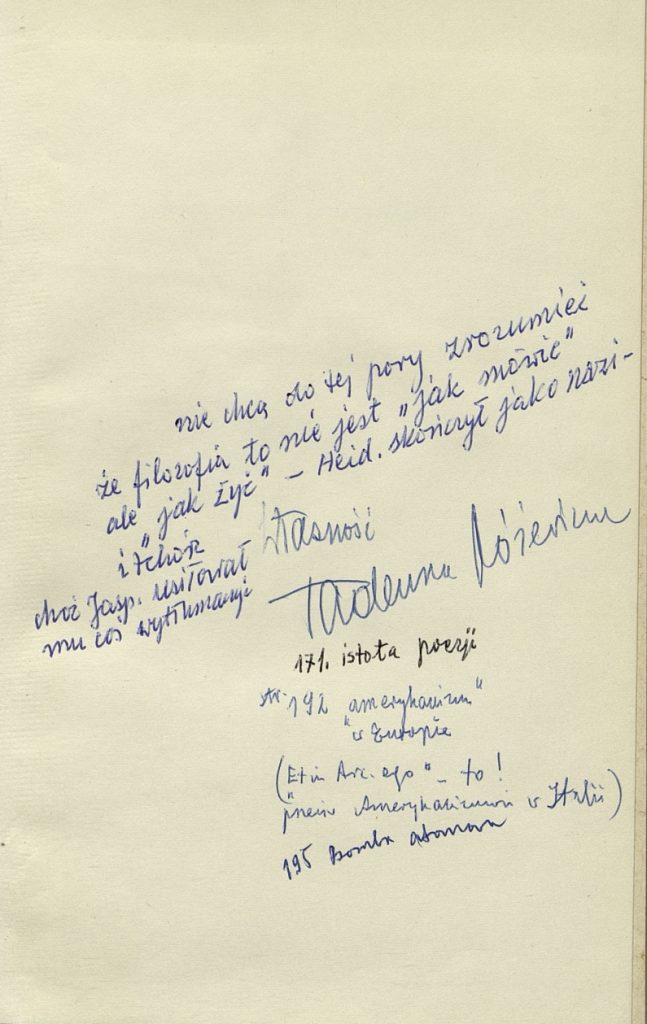 nie chcą do tej pory zrozumieć
że filozofia to nie jest „jak mówić"
ale „jak żyć" – Heid. skończył jako nazi-
i tchórz
choć Jasp. usiłował
mu coś wytłumaczyć
Własność
Tadeusza Różewicza
171. istota poezji
str. 192 amerykanizm"
"w Europie
(„Et in Arc. ego" – to!
przeciw Amerykanizmowi w Italii)
195 Bomba atomowa